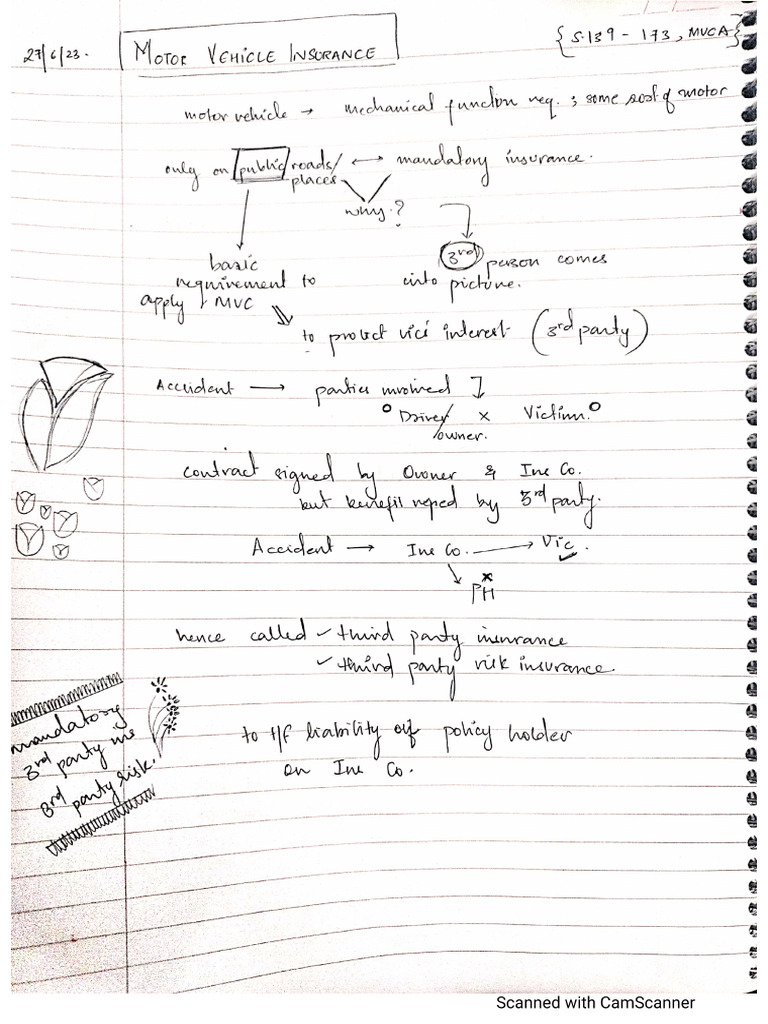 27/6/23.
MOTOR VEHICLE INSURANCE
{S.139 - 173, MVCA}
motor vehicle → mechanical function req. ; some sort of motor
only on public roads/ ↔ mandatory insurance.
places
why?
basic
requirement to
apply MVC
3rd person comes
into picture.
to protect vic's interest (3rd party)
Accident → parties involved
Driver/ x Victim.
owner.
contract signed by Owner & Ins Co.
but benefit reped by 3rd party.
Accident → Ins Co. → Vic.
PH
hence called ✓ third party insurance
✓ third party risk insurance.
mandatory
3rd party ins
3rd party risk.
to t/f liability of policy holder
on Ins Co.
Scanned with CamScanner